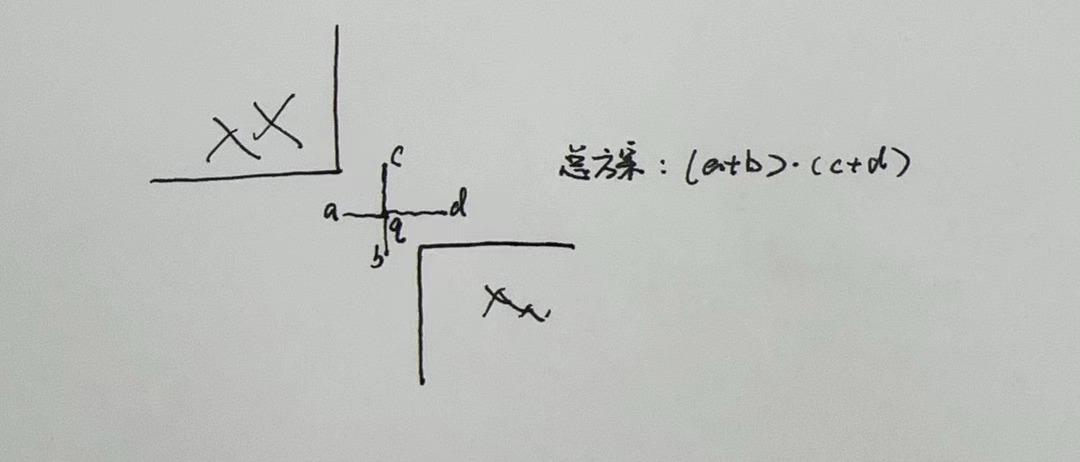 XX
总方案:(a+b)·(c+d)
c
a
d
q
b
xx